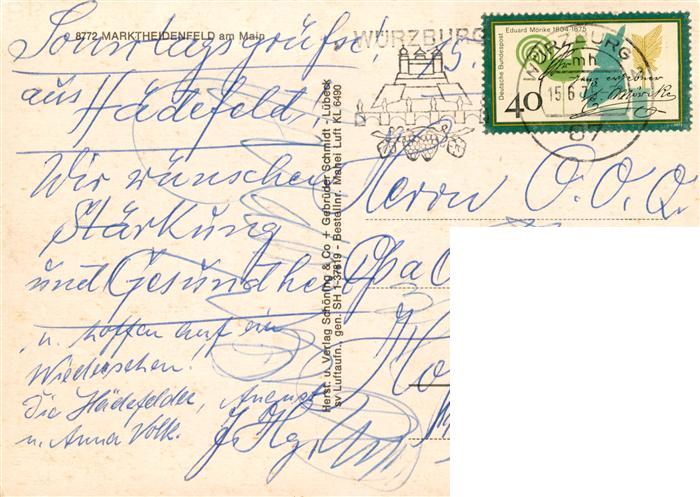 8772 MARKTHEIDENFELD am Main
Sonntagsgrüße!
aus Hädefeld,
Wir wünschen
Stärkung
und Gesundheit
u. hoffen auf ein
Wiedersehen!
Die Hädefelder, August
u. Anna Volk.
Herst. u. Verlag Schöning & Co + Gebrüder Schmidt - Lübeck
sv Luftaufn., gen. SH 1-37819 - Bestellnr. Mahei Luft KL 6490
WÜRZBURG
Deutsche Bundespost
Eduard Mörike 1804-1875
40
WÜRZBURG
15.6.
Herrn O. O. Q.